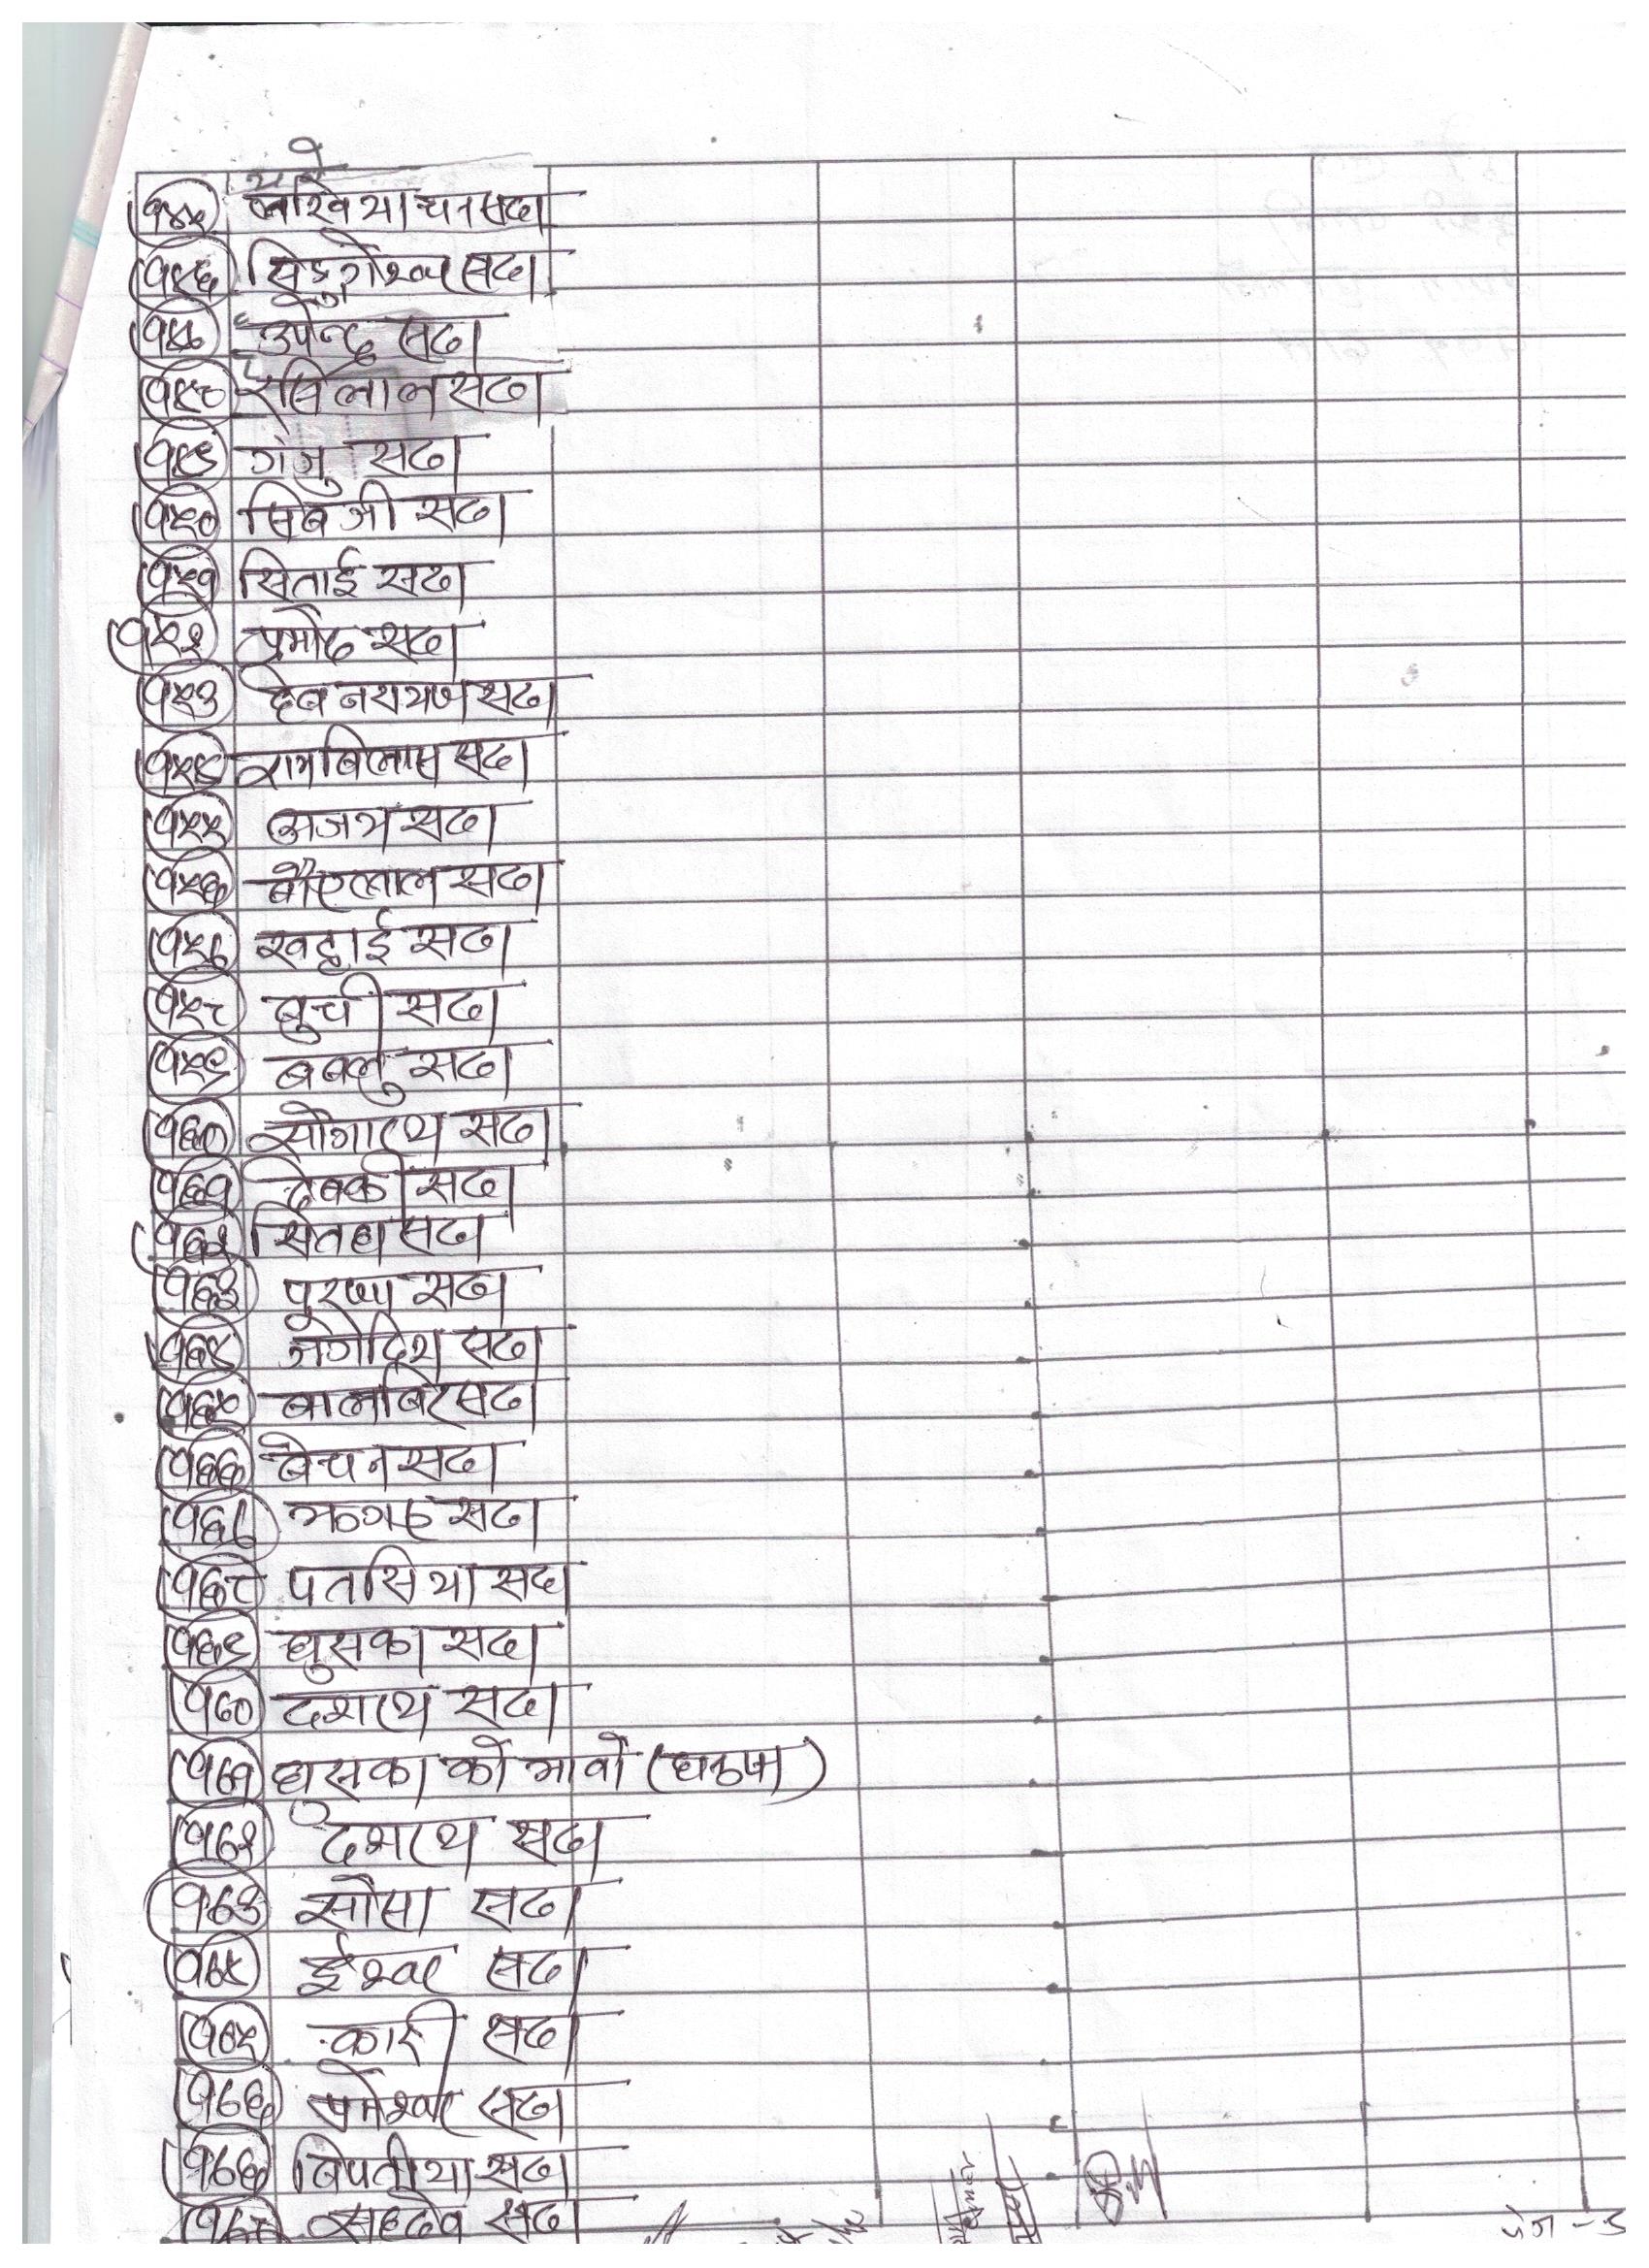 १४५ लखिया चन सदा
१४६ सिङ्गेश्वर सदा
१४७ उपेन्द्र सदा
१४८ रसिलाल सदा
१४९ गंजु सदा
१५० सिबजी सदा
१५१ सिताई सदा
१५२ प्रमोद सदा
१५३ देब नरायण सदा
१५४ रामबिलास सदा
१५५ अजय सदा
१५६ बौएलाल सदा
१५७ खट्टाई सदा
१५८ बुची सदा
१५९ बबलु सदा
१६० सोगारथ सदा
१६१ देबकी सदा
१६२ सितहा सदा
१६३ पुरण सदा
१६४ जगदिश सदा
१६५ बालबिर सदा
१६६ बेचन सदा
१६७ सदा
१६८ पतसिया सदा
१६९ घुसका सदा
१७० दशरथ सदा
१७१ घुसका को भावो
१७२ दशरथ सदा
१७३ सोमा सदा
१७४ ईश्वर सदा
१७५ कारी सदा
१७६ प्रमेश्वर सदा
१७६ बिपतीया सदा
१७८ सहदेव सदा